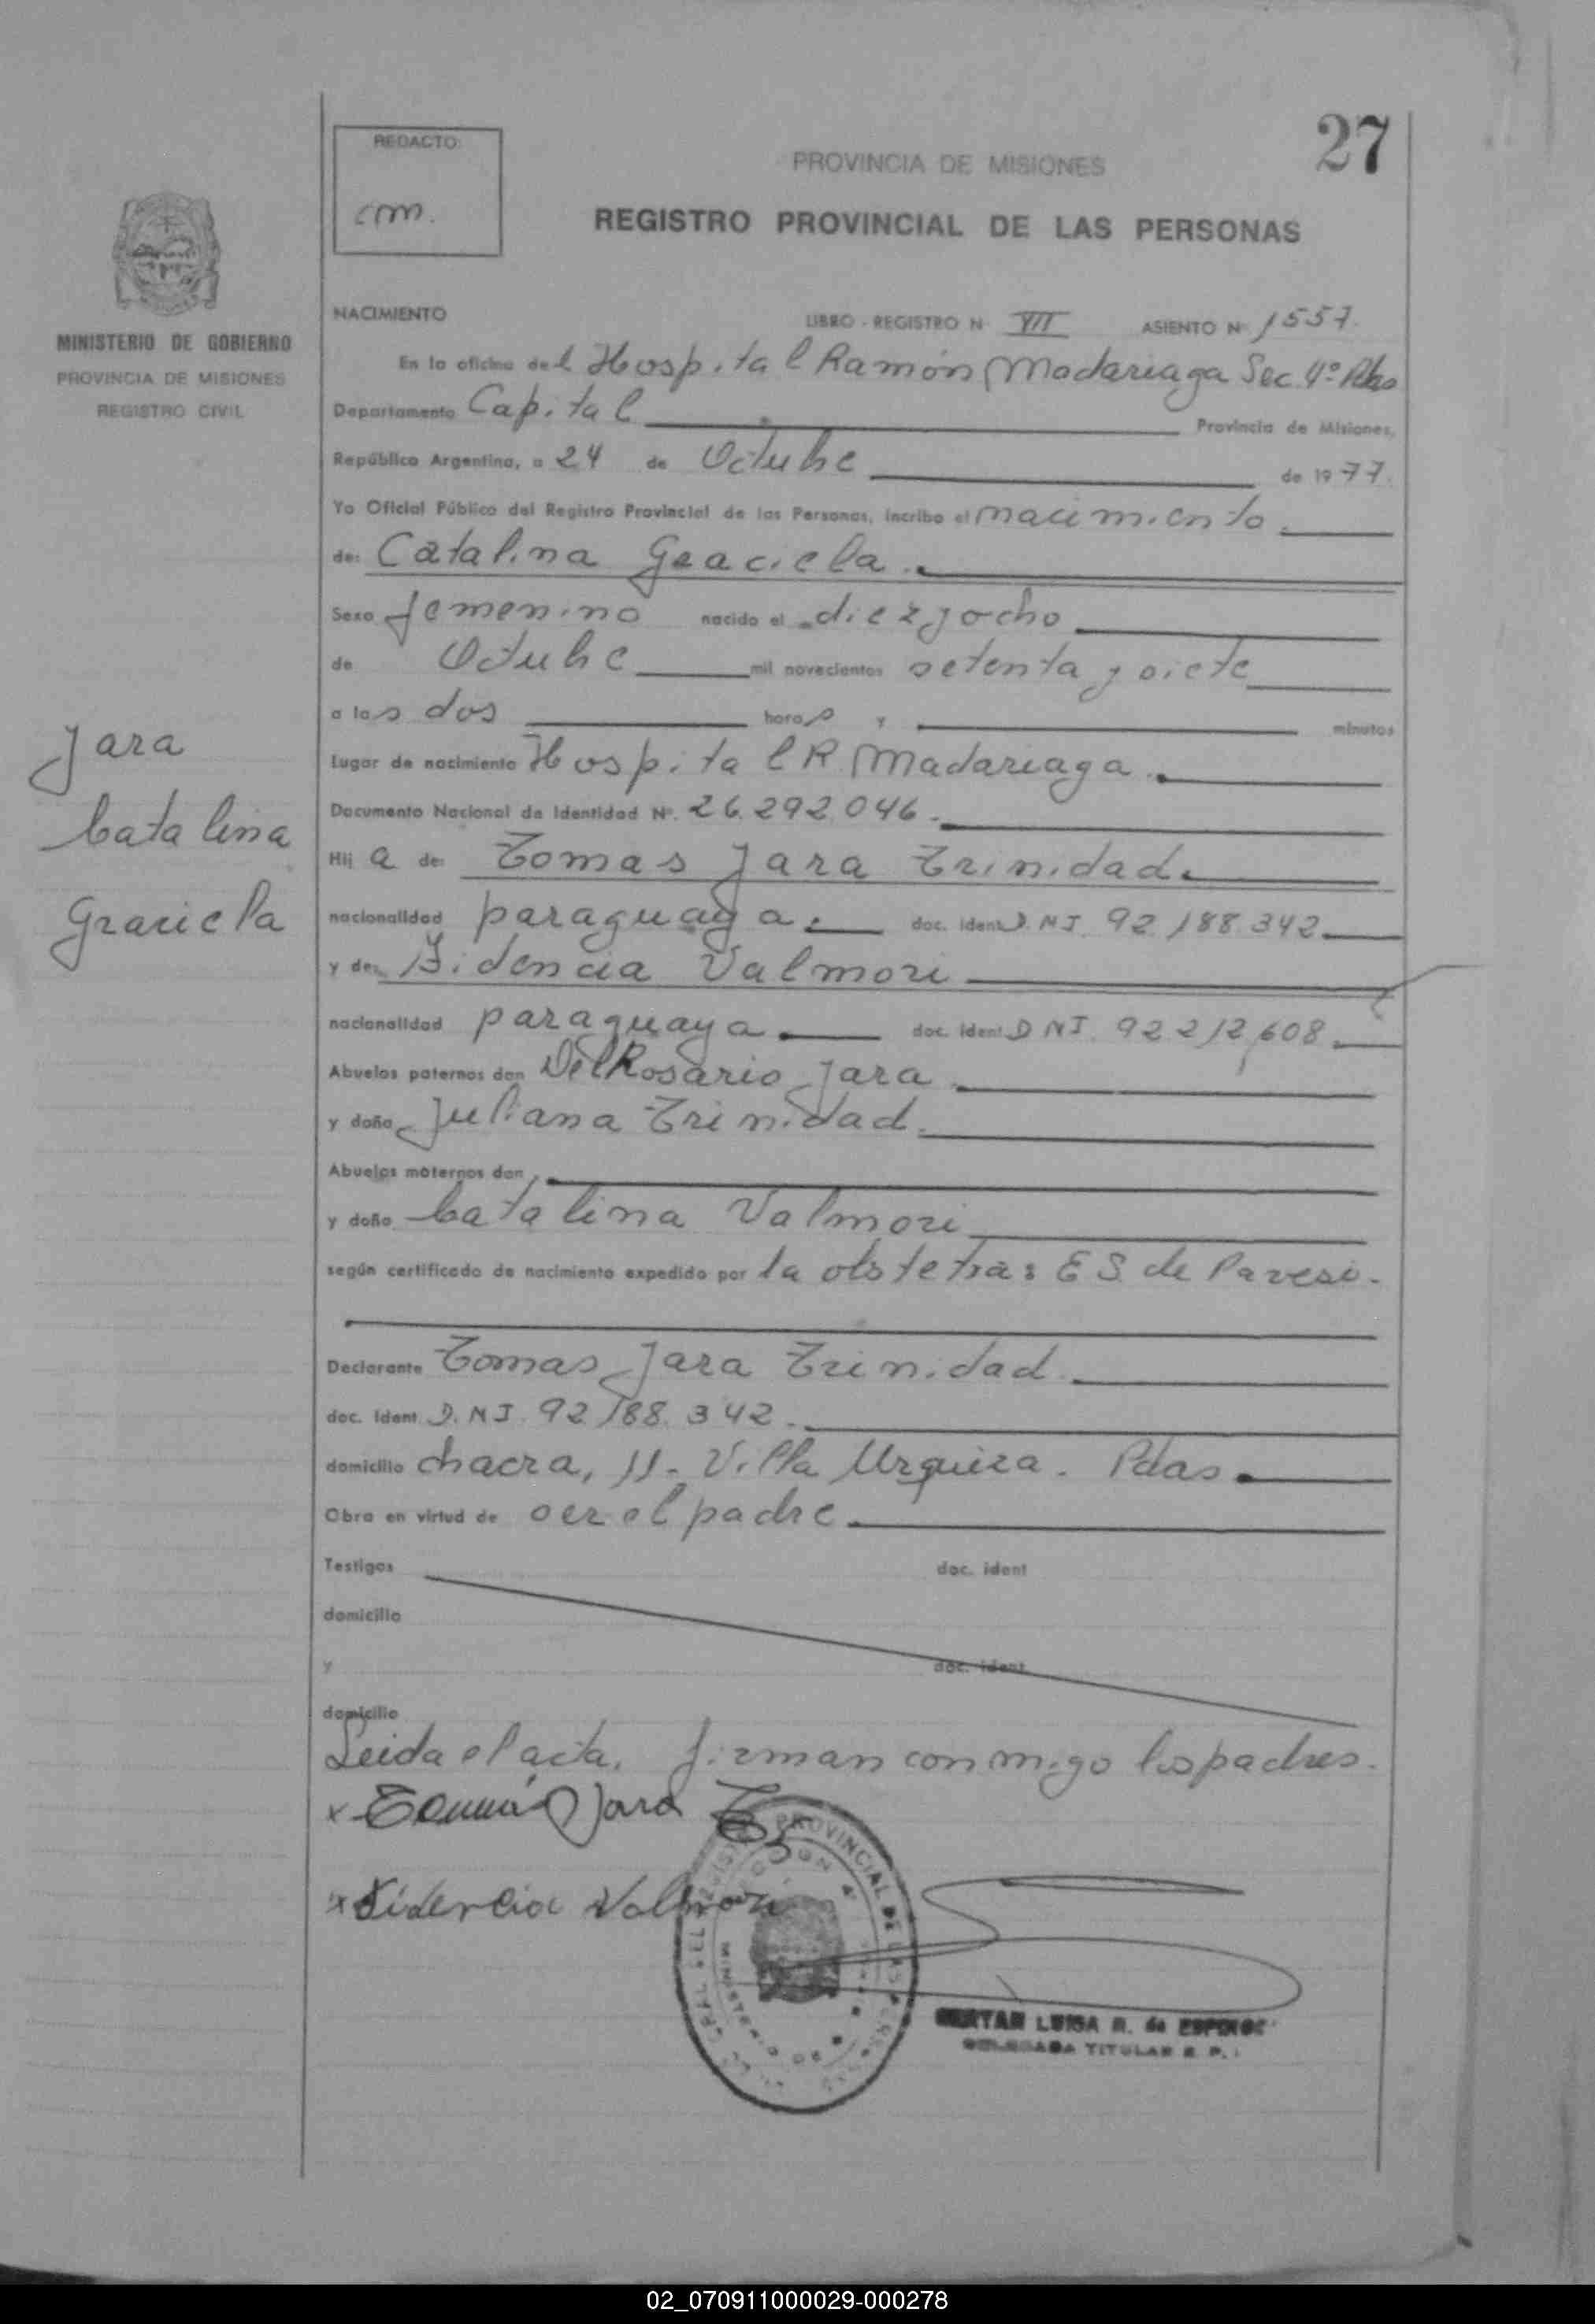 27
REDACTO:
cm.
PROVINCIA DE MISIONES
REGISTRO PROVINCIAL DE LAS PERSONAS
MINISTERIO DE GOBIERNO
PROVINCIA DE MISIONES
REGISTRO CIVIL
NACIMIENTO LIBRO - REGISTRO N VII ASIENTO Nº 1557.
En la oficina del Hospital Ramón Madariaga Sec. 4º Pdas
Departamento Capital Provincia de Misiones,
República Argentina, a 24 de Octubre de 1977.
Yo Oficial Público del Registro Provincial de las Personas, incribo el nacimiento.
de: Catalina Graciela.
Sexo femenino nacido el diez y ocho
de Octubre mil novecientos setenta y siete
a las dos horas y minutos
Jara
Catalina
Graciela
Lugar de nacimiento Hospital R. Madariaga.
Documento Nacional de Identidad Nº. 26.292.046.
Hij a de: Tomas Jara Trinidad.
nacionalidad paraguaya. doc. ident D.N.I. 92.188.342.
y de: Fidencia Valmori
nacionalidad paraguaya. doc. ident D.N.I. 92.212.608.
Abuelos paternos don Del Rosario Jara.
y doña Juliana Trinidad.
Abuelos maternos don
y doña Catalina Valmori
según certificado de nacimiento expedido por la obstetra: E S. de Pavesi.
Declarante Tomas Jara Trinidad.
doc. ident. D.N.I. 92.188.342.
domicilio chacra, 11. Villa Urquiza. Pdas.
Obra en virtud de ser el padre.
Testigos doc. ident
domicilio
y doc. ident
domicilio
Leida el acta, firman conmigo los padres.
x Tomás Jara T
x Fidencia Valmori
PROVINCIAL DE LAS PERSONAS
LUISA R. de
TITULAR R. P.
02_070911000029-000278